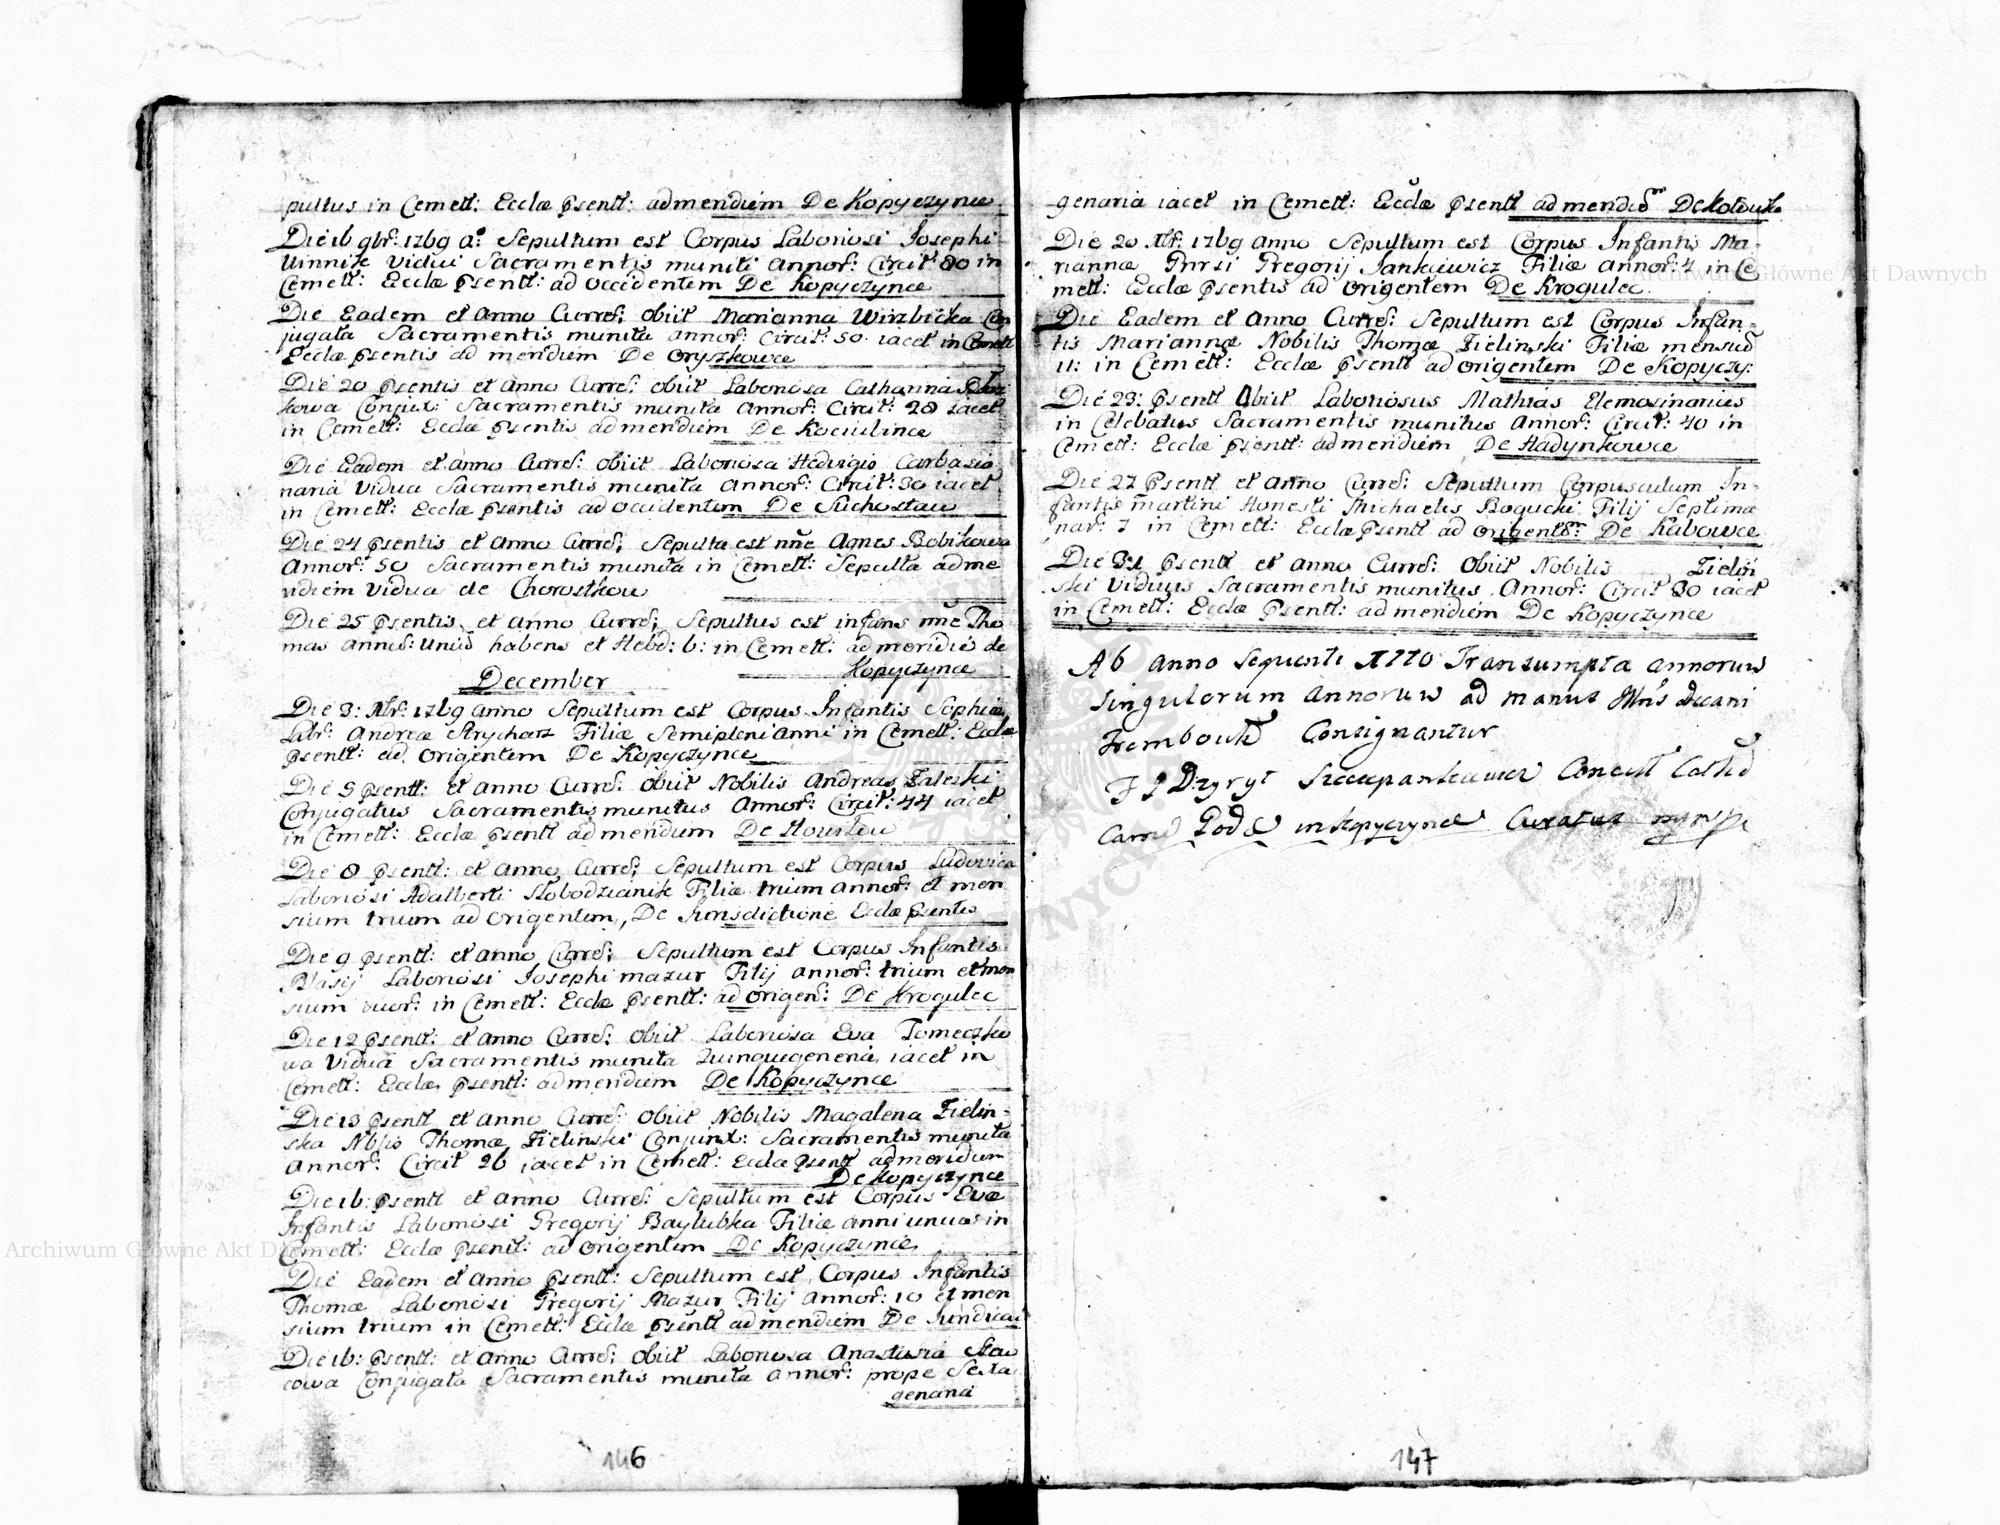 pultus in Cemett: Ecclæ Psentt: ad meridiem De Kopyczynce
Die 16 9br: 1769 a: Sepultum est Corpus Laboriosi Josephi
Winnik Vidui Sacramentis muniti Annor: Circit: 80 in
Cemett: Ecclæ Psentt: ad Occidentem De Kopyczynce
Die Eadem et Anno Curre: Obiit Marianna Wirzbicka Con
jugata Sacramentis munita annor: Circit: 50 iacet in Cemett
Ecclæ Psentis ad meridiem De Oryszkowce
Die 20 Psentis et Anno Curre: Obiit Laboriosa Catharina
kowa Conjux: Sacramentis munita Annor: Circit: 28 iacet
in Cemett: Ecclæ Psentis ad meridiem De Kociubince
Die Eadem et anno Curre: Obiit Laboriosa Hedvigis Carbasio
naria Vidua Sacramentis munita Annor: Circit: 30 iacet
in Cemett: Ecclæ Psentis ad occidentem De Suchostaw
Die 24 Psentis et Anno Curre: Sepulta est nne Agnes Bobikowa
Annor: 50 Sacramentis munita in Cemett: Sepulta ad me
ridiem Vidua de Chorostkow
Die 25 Psentis et Anno Curre: Sepultus est infans nne Tho
mas Annis: Unus habens et Hebd: 6: in Cemett: ad meridie de
Kopyczynce
December
Die 3: Xbr: 1769 anno Sepultum est Corpus Infantis Sophiæ
Labr: Andreæ Strycharz Filiæ Semipleni Anni in Cemett: Ecclæ
Psentt: ad Origentem De Kopyczynce
Die 5 Psentt: et anno Curre: Obiit Nobilis Andreas Zaleski
Conjugatus Sacramentis munitus Annor: Circit: 44 iacet
in Cemett: Ecclæ Psentt ad meridium De
Die 8 Psentt: et Anno Curre: Sepultum est Corpus Ludovica
Laboriosi Adalberti Słobodzianik Filiæ trium Annor: et men
sium trium ad Origentem, De Jurisdictione Ecclæ Psentis
Die 9 Psentt: et anno Curre: Sepultum est Corpus Infantis
Blasij Laboriosi Josephi mazur Filij annor: trium et men
sium duor: in Cemett: Ecclæ Psentt: ad Origen: De Krogulec
Die 12 Psentt: et Anno Curre: Obiit Laboriosa Eva Tomeczko
wa Vidua Sacramentis munita Quinquegenena, iacet in
Cemett: Ecclæ Psentt: ad meridiem De Kopyczynce
Die 13 Psentt et anno Curre: Obiit Nobilis Magalena Zielin-
ska Nblis Thomæ Zielinski Conjunx: Sacramentis munita
Annor: Circit 26 iacet in Cemett: Ecclæ Psentt ad meridium
De Kopyczynce
Die 16: Psentt et Anno Curre: Sepultum est Corpus Evæ
Infantis Laboriosi Gregorij Baylubka Filiæ anni unius in
Cemett: Ecclæ Psentt: ad Origentem De Kopyczynce
Die Eadem et Anno Psentt: Sepultum est Corpus Infantis
Thomæ Laboriosi Gregorij Mazur Filij Annor: 10 et men
sium trium in Cemett: Ecclæ Psentt ad meridiem De
Die 16: Psentt: et Anno Curre: Obiit Laboriosa Anastasia
cowa Conjugata Sacramentis munita Annor: prope Sexta
genaria
146
genaria iacet in Cemett: Ecclæ Psentt ad meridiem De
Die 20 Xbr: 1769 anno Sepultum est Corpus Infantis Ma-
riannæ Gnrsi Gregorij Jankiewicz Filiæ Annor: 4 in Ce
mett: Ecclæ Psentis ad Origentem De Krogulec
Die Eadem et Anno Curre: Sepultum est Corpus Infan-
tis Mariannæ Nobilis Thomæ Zielinski Filiæ mensiu
11: in Cemett: Ecclæ Psentt ad origentem De Kopyczy:
Die 23: Psentt Obiit Laboriosus Mathias Elemosinarius
in Celebatus Sacramentis munitus Annor: Circit: 40 in
Cemett: Ecclæ Psentt: ad meridiem De Hadynkowce
Die 27 Psentt et anno Curre: Sepultum Corpusculum In-
fantis martini Honesti Michaelis Bogucki Filij Septima
nar: 7 in Cemett: Ecclæ Psentt ad origente: De Kabowce
Die 31 Psentt et anno Curre: Obiit Nobilis Zielin
ski Viduus Sacramentis munitus Annor: Circit 80 iacet
in Cemett: Ecclæ Psentt: ad meridiem De Kopyczynce
Ab Anno Sequenti 1770 Transumpta annorum
Singulorum Annorum ad manus Decani
Consignantur
in Kopyczynce Curatus
147
Archiwum Główne Akt Dawnych
Archiwum Główne Akt Dawnych